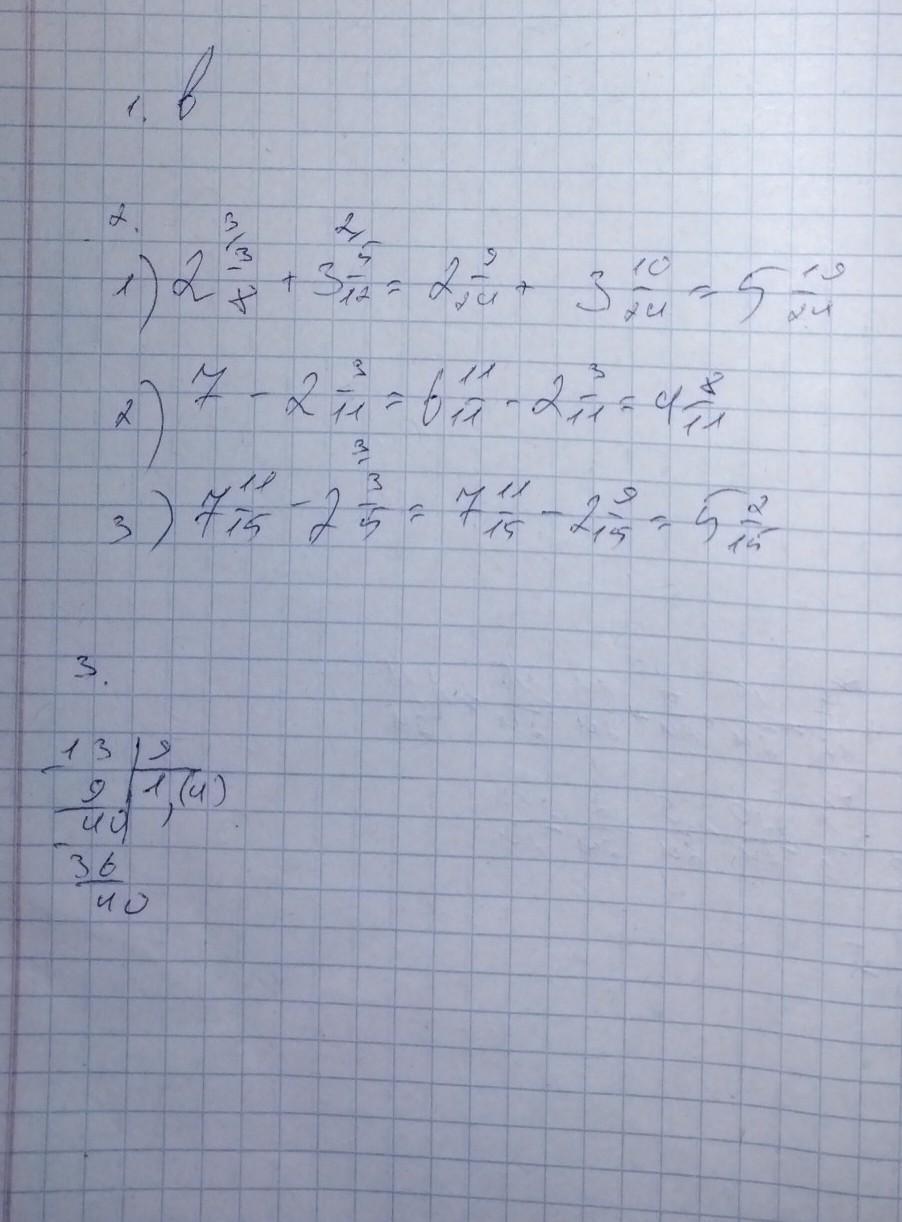 1. в
2.
3/ 2/
1) 2 3/8 + 3 5/12 = 2 9/24 + 3 10/24 = 5 19/24
2) 7 - 2 3/11 = 6 11/11 - 2 3/11 = 4 8/11
3/
3) 7 11/15 - 2 3/5 = 7 11/15 - 2 9/15 = 5 2/15
3.
- 13 | 9
9 | 1,(4)
40
- 36
40